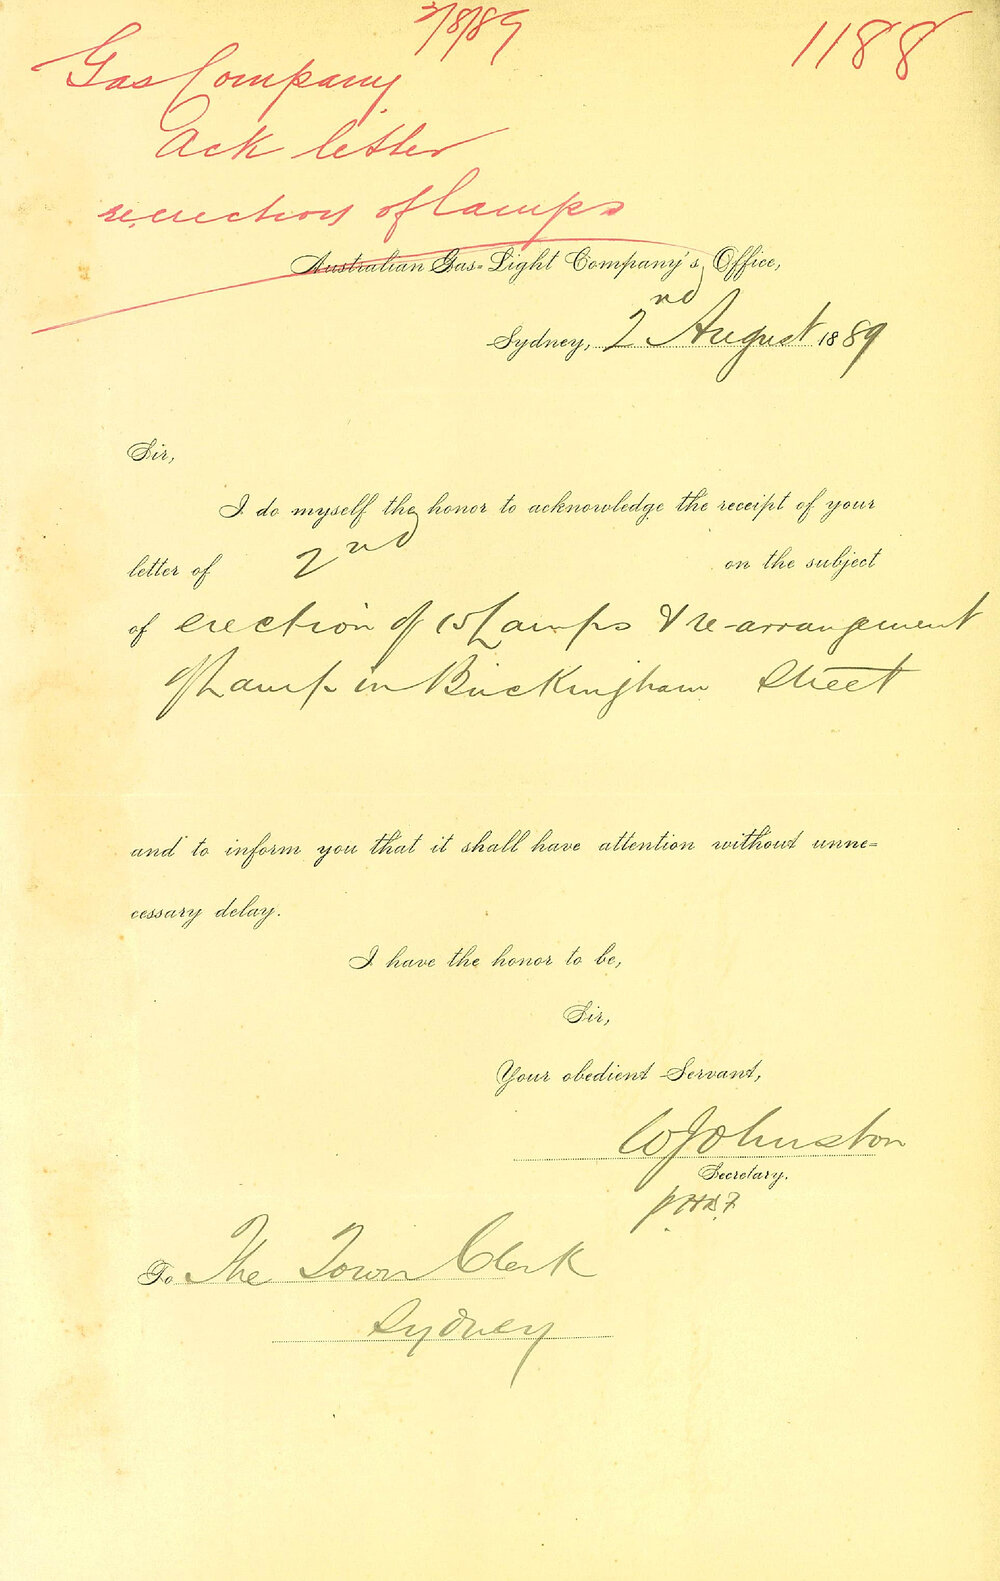 3/8/89
1188
Gas Company
Ack letter
re erection of lamps
Australian Gas-Light Company's Office,
Sydney, 2nd August 1889
Sir,
I do myself the honor to acknowledge the receipt of your
letter of 2nd on the subject
of erection of 15 Lamps & re-arrangement
of Lamp in Buckingham Street
and to inform you that it shall have attention without unne=
cessary delay.
I have the honor to be,
Sir,
Your obedient Servant,
W J Johnston
Secretary.
To The Town Clerk
Sydney